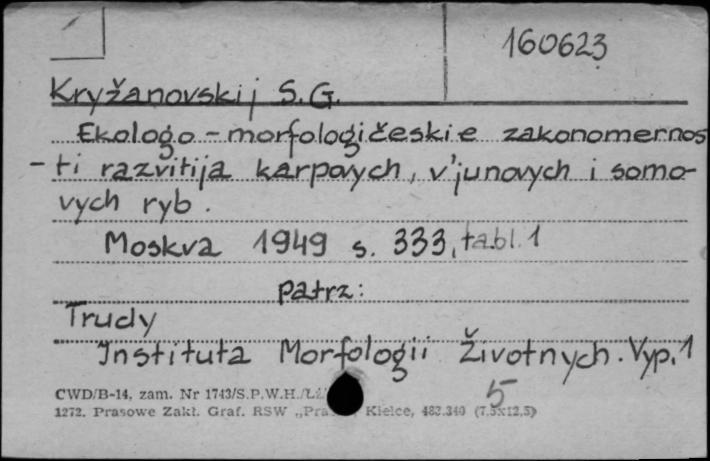 1
160623
Kryžanovskij S.G.
Ekologo-morfologičeskie zakonomernos
-ti razvitija karpovych, v'junovych i somo-
vych ryb.
Moskva 1949 s. 333, tabl. 1
patrz:
Trudy
Instituta Morfologii Životnych. Vyp. 1
5
CWD/B-14, zam. Nr 1743/S.P.W.H.
1272. Prasowe Zakł. Graf. RSW Kielce, 483.340 (7,5x12,5)